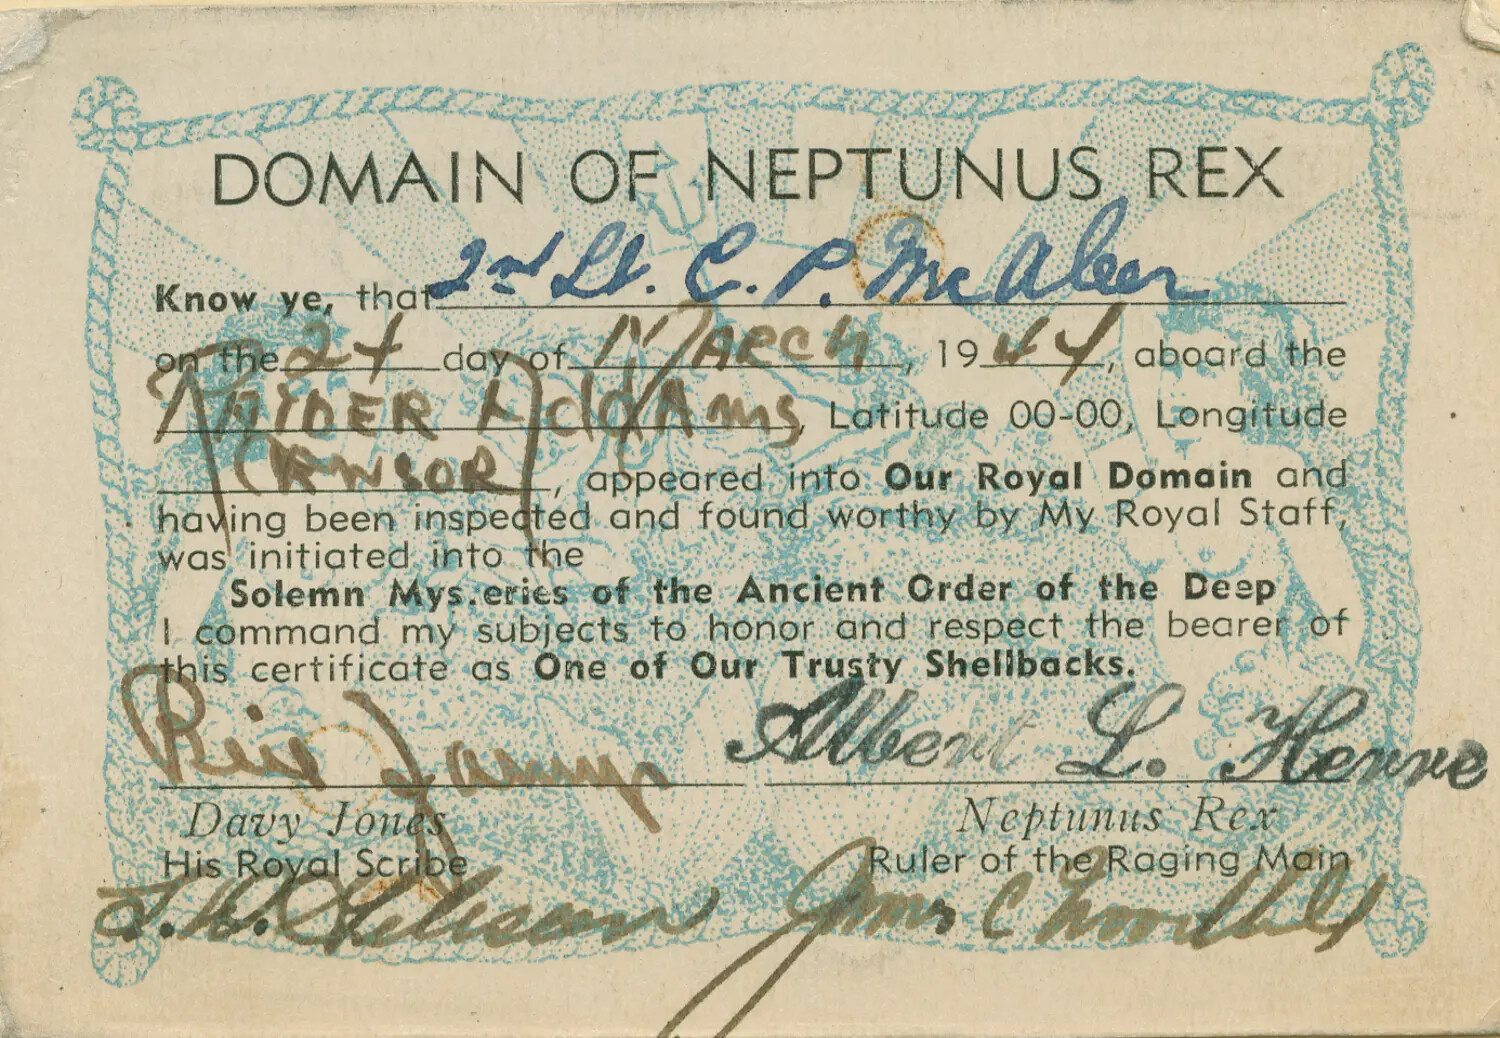 DOMAIN OF NEPTUNUS REX
Know ye, that 2nd Lt. C. P. McAleer
on the 24 day of March, 1944, aboard the
, Latitude 00-00, Longitude
, appeared into Our Royal Domain and
having been inspected and found worthy by My Royal Staff,
was initiated into the
Solemn Mys.eries of the Ancient Order of the Deep
I command my subjects to honor and respect the bearer of
this certificate as One of Our Trusty Shellbacks.
Albert L. Henre
Davy Jones Neptunus Rex
His Royal Scribe Ruler of the Raging Main